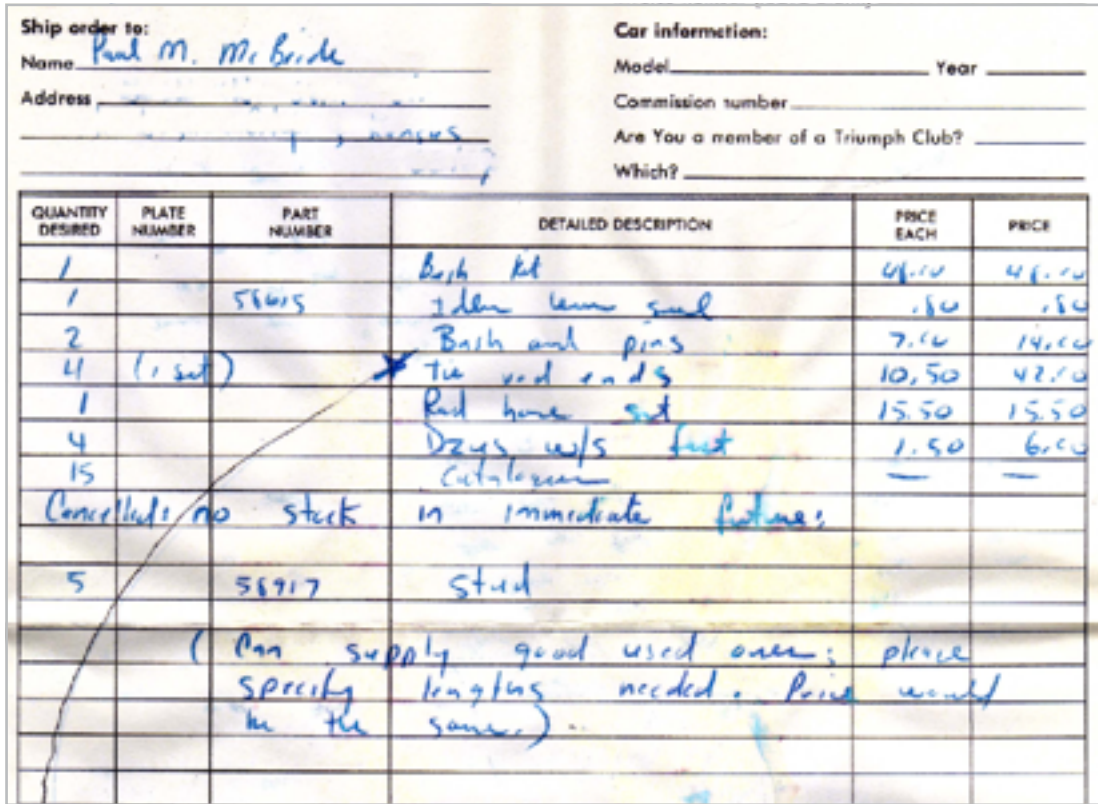 Ship order to:
Name Paul M. McBride
Address
Car information:
Model Year
Commission number
Are You a member of a Triumph Club?
Which?
QUANTITY DESIRED PLATE NUMBER PART NUMBER DETAILED DESCRIPTION PRICE EACH PRICE
1 Bush kit
1 58615 Idler seal .80 .80
2 Bush and pins 7.00 14.00
4 (1 set) Tie rod ends 10.50 42.00
1 Rad hose set 15.50 15.50
4 Dzus w/s 1.50 6.00
15 Catalogues — —
Cancelled: no stock in immediate future:
5 56917 Stud
( Can supply good used ones; please
specify lengths needed. Price would
be the same.)